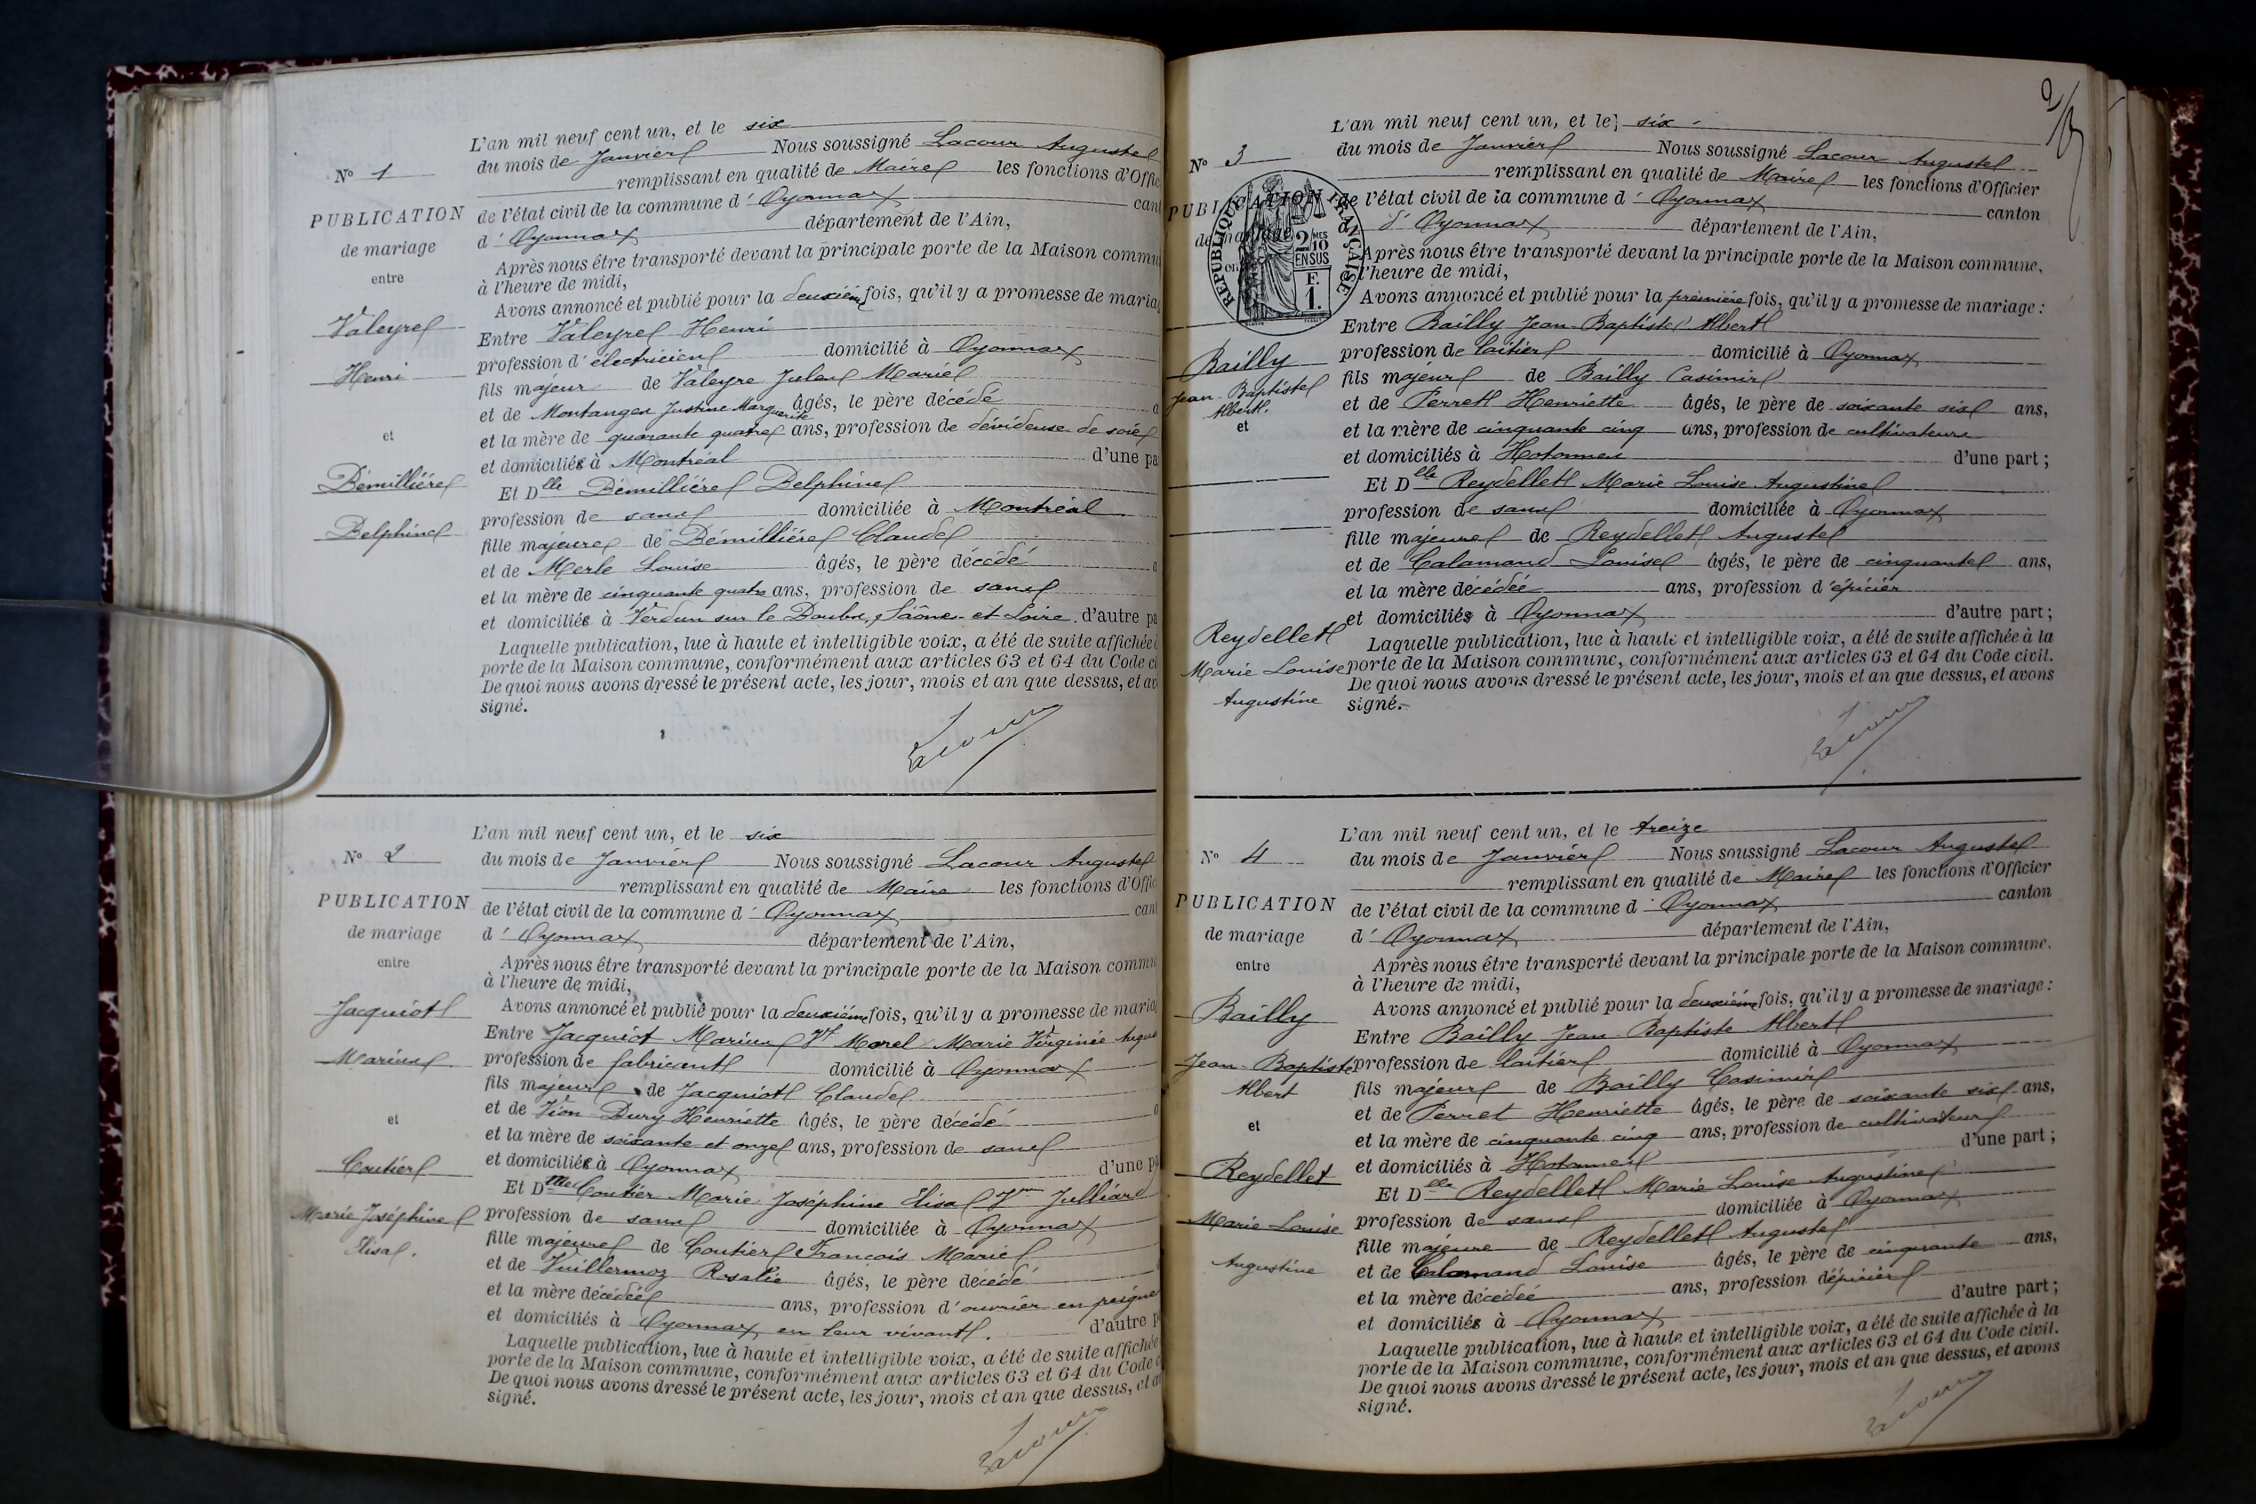 N° 1
PUBLICATION
de mariage
entre
Valeyre
Henri
et
Démillière
Delphine
L'an mil neuf cent un, et le six
du mois de Janvier Nous soussigné Lacour Auguste
remplissant en qualité de Maire les fonctions d'Offic
de l'état civil de la commune d' Oyonnax cant
d' Oyonnax département de l'Ain,
Après nous être transporté devant la principale porte de la Maison commu
à l'heure de midi,
Avons annoncé et publié pour la deuxième fois, qu'il y a promesse de maria
Entre Valeyre Henri
profession d'électricien domicilié à Oyonnax
fils majeur de Valeyre Jules Marie
et de Montangen Justine Marguerite âgés, le père décédé
et la mère de quarante quatre ans, profession de dévideuse de soie
et domiciliés à Montréal d'une pa
Et Dlle Démillière Delphine
profession de sans domiciliée à Montréal
fille majeure de Démillière Claude
et de Merle Louise âgés, le père décédé
et la mère de cinquante quatre ans, profession de sans
et domiciliés à Verdun sur le Doubs, Saône et Loire. d'autre pa
Laquelle publication, lue à haute et intelligible voix, a été de suite affichée
porte de la Maison commune, conformément aux articles 63 et 64 du Code ci
De quoi nous avons dressé le présent acte, les jour, mois et an que dessus, et av
signé.
Lacour
N° 2
PUBLICATION
de mariage
entre
Jacquiot
Marius
et
Coutier
Marie Joséphine
Elisa.
L'an mil neuf cent un, et le six
du mois de Janvier Nous soussigné Lacour Auguste
remplissant en qualité de Maire les fonctions d'Offic
de l'état civil de la commune d' Oyonnax cant
d' Oyonnax département de l'Ain,
Après nous être transporté devant la principale porte de la Maison commu
à l'heure de midi,
Avons annoncé et publié pour la deuxième fois, qu'il y a promesse de maria
Entre Jacquiot Marius Vf Morel Marie Virginie Augus
profession de fabricant domicilié à Oyonnax
fils majeur de Jacquiot Claude
et de Vion Dury Henriette âgés, le père décédé
et la mère de soixante et onze ans, profession de sans
et domiciliés à Oyonnax d'une pa
Et Dme Coutier Marie Joséphine Elisa Vve Julliard
profession de sans domiciliée à Oyonnax
fille majeure de Coutier François Marie
et de Vuillermoz Rosalie âgés, le père décédé
et la mère décédée ans, profession d'ouvrier en peigne
et domiciliés à Oyonnax en leur vivant. d'autre p
Laquelle publication, lue à haute et intelligible voix, a été de suite affichée
porte de la Maison commune, conformément aux articles 63 et 64 du Code c
De quoi nous avons dressé le présent acte, les jour, mois et an que dessus, et av
signé.
Lacour
2
N° 3
PUBLICATION
de mariage
en
RÉPUBLIQUE FRANÇAISE
2/10 MES
EN SUS
F.
1.
Bailly
Jean-Baptiste
Albert.
et
Reydellet
Marie Louise
Augustine
L'an mil neuf cent un, et le six
du mois de Janvier Nous soussigné Lacour Auguste
remplissant en qualité de Maire les fonctions d'Officier
de l'état civil de la commune d' Oyonnax canton
d' Oyonnax département de l'Ain,
Après nous être transporté devant la principale porte de la Maison commune,
à l'heure de midi,
Avons annoncé et publié pour la première fois, qu'il y a promesse de mariage :
Entre Bailly Jean-Baptiste Albert
profession de laitier domicilié à Oyonnax
fils majeur de Bailly Casimir
et de Perret Henriette âgés, le père de soixante six ans,
et la mère de cinquante cinq ans, profession de cultivateurs
et domiciliés à Hotonnes d'une part ;
Et Dlle Reydellet Marie Louise Augustine
profession de sans domiciliée à Oyonnax
fille majeure de Reydellet Auguste
et de Calamand Louise âgés, le père de cinquante ans,
et la mère décédée ans, profession d'épicier
et domiciliés à Oyonnax d'autre part ;
Laquelle publication, lue à haute et intelligible voix, a été de suite affichée à la
porte de la Maison commune, conformément aux articles 63 et 64 du Code civil.
De quoi nous avons dressé le présent acte, les jour, mois et an que dessus, et avons
signé.
Lacour
N° 4
PUBLICATION
de mariage
entre
Bailly
Jean-Baptiste
Albert
et
Reydellet
Marie Louise
Augustine
L'an mil neuf cent un, et le treize
du mois de Janvier Nous soussigné Lacour Auguste
remplissant en qualité de Maire les fonctions d'Officier
de l'état civil de la commune d' Oyonnax canton
d' Oyonnax département de l'Ain,
Après nous être transporté devant la principale porte de la Maison commune.
à l'heure de midi,
Avons annoncé et publié pour la deuxième fois, qu'il y a promesse de mariage :
Entre Bailly Jean Baptiste Albert
profession de laitier domicilié à Oyonnax
fils majeur de Bailly Casimir
et de Perret Henriette âgés, le père de soixante six ans,
et la mère de cinquante cinq ans, profession de cultivateur
et domiciliés à Hotonnes d'une part ;
Et Dlle Reydellet Marie Louise Augustine
profession de sans domiciliée à Oyonnax
fille majeure de Reydellet Auguste
et de Calamand Louise âgés, le père de cinquante ans,
et la mère décédée ans, profession d'épicier
et domiciliés à Oyonnax d'autre part ;
Laquelle publication, lue à haute et intelligible voix, a été de suite affichée à la
porte de la Maison commune, conformément aux articles 63 et 64 du Code civil.
De quoi nous avons dressé le présent acte, les jour, mois et an que dessus, et avons
signé.
Lacour